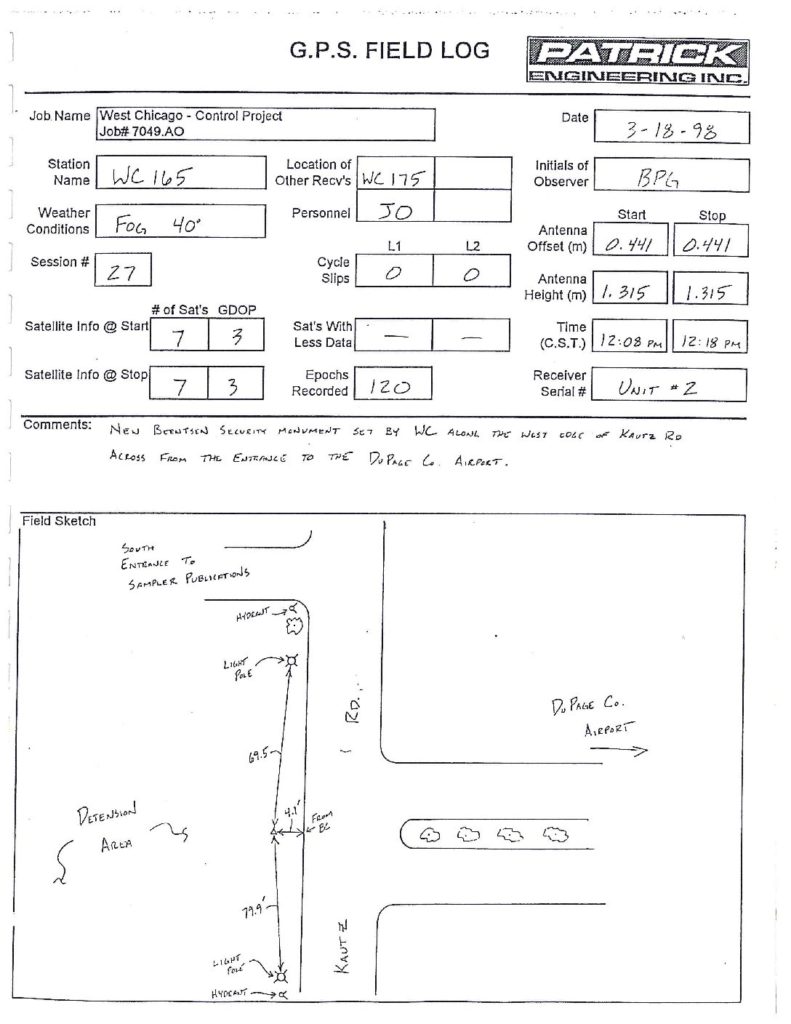 G.P.S. FIELD LOG
PATRICK
ENGINEERING INC.
Job Name West Chicago - Control Project
Job# 7049.AO
Date 3-18-98
Station Name WC 165
Location of Other Recv's WC 175
Initials of Observer BPG
Weather Conditions FOG 40°
Personnel JO
Start Stop
Antenna Offset (m) 0.441 0.441
Session # 27
L1 L2
Cycle Slips 0 0
Antenna Height (m) 1.315 1.315
# of Sat's GDOP
Satellite Info @ Start 7 3
Sat's With Less Data — —
Time (C.S.T.) 12:08 PM 12:18 PM
Satellite Info @ Stop 7 3
Epochs Recorded 120
Receiver Serial # UNIT #2
Comments: NEW BERNTSEN SECURITY MONUMENT SET BY WC ALONG THE WEST EDGE OF KAUTZ RD
ACROSS FROM THE ENTRANCE TO THE DUPAGE CO. AIRPORT.
Field Sketch
SOUTH
ENTRANCE TO
SAMPLER PUBLICATIONS
HYDRANT
LIGHT
POLE
RD.
DUPAGE CO.
AIRPORT
69.5
4.1'
FROM
BC
DETENSION
AREA
79.9'
KAUTZ
LIGHT
POLE
HYDRANT